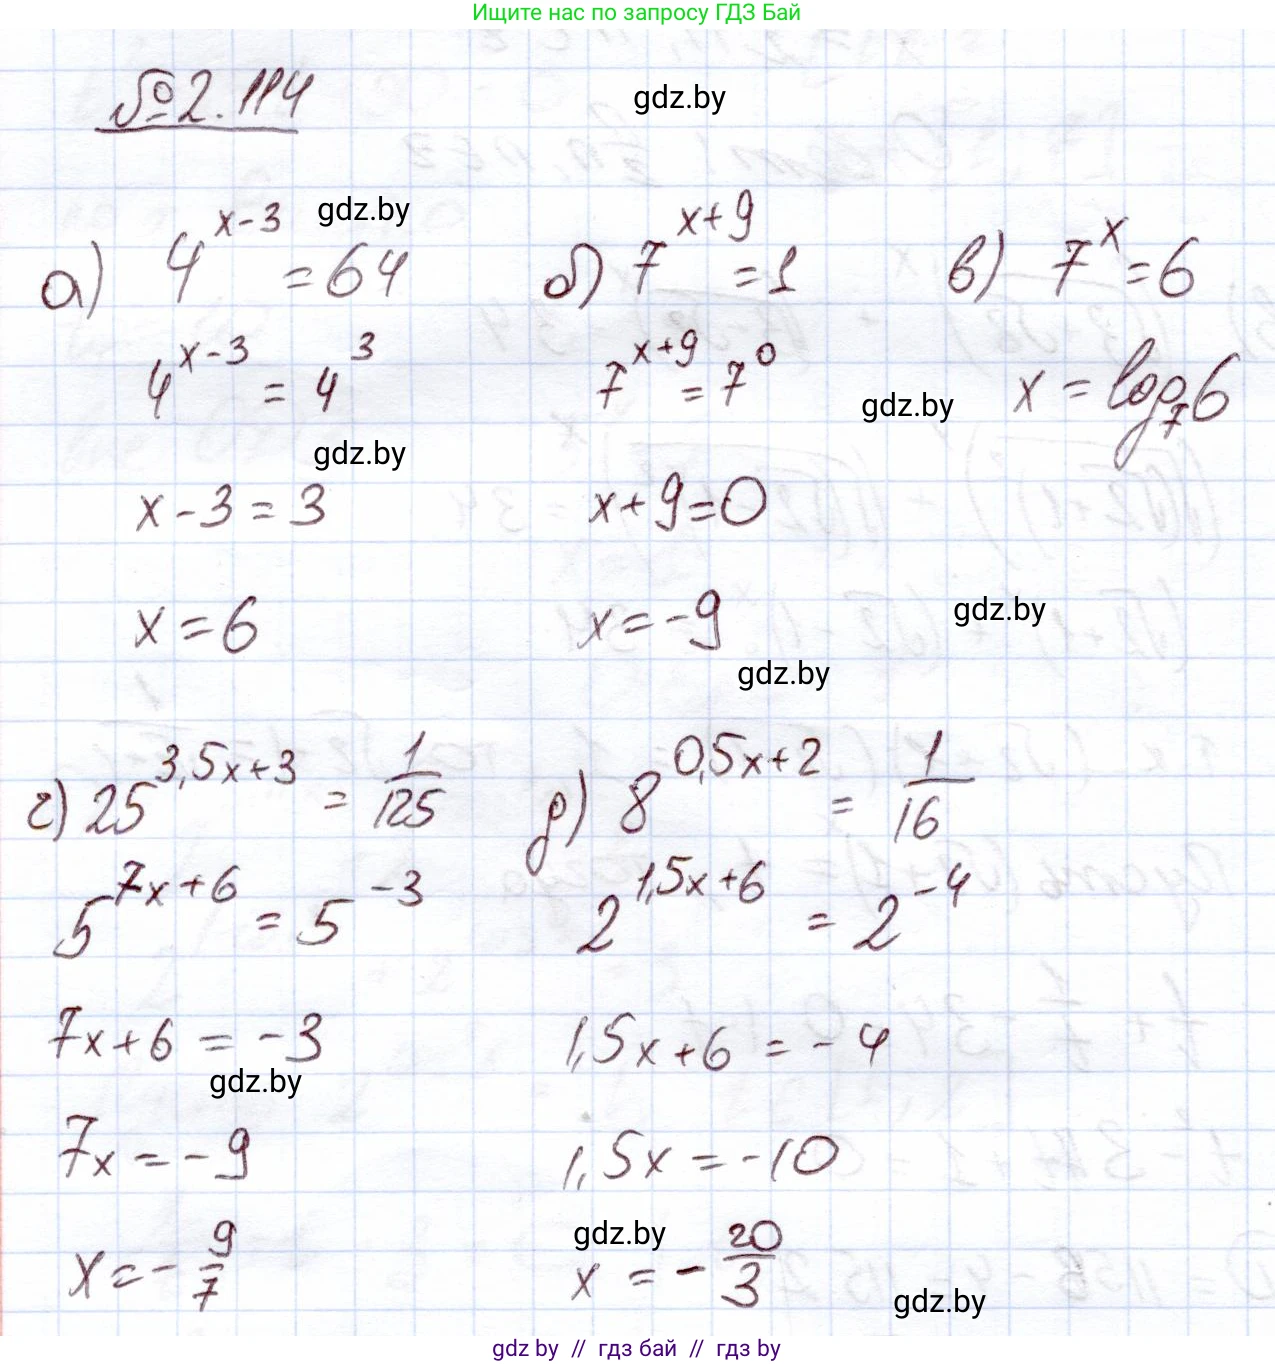 Ищите нас по запросу ГДЗ Бай
№2.114
gdz.by
а) 4^{x-3} = 64
gdz.by
4^{x-3} = 4^3
gdz.by
x - 3 = 3
x = 6
б) 7^{x+9} = 1
7^{x+9} = 7^0
x + 9 = 0
x = -9
в) 7^x = 6
gdz.by
x = log_7 6
gdz.by
gdz.by
г) 25^{3,5x+3} = 1/125
5^{7x+6} = 5^{-3}
7x + 6 = -3
gdz.by
7x = -9
x = -9/7
д) 8^{0,5x+2} = 1/16
2^{1,5x+6} = 2^{-4}
1,5x + 6 = -4
1,5x = -10
gdz.by
x = -20/3
gdz.by
gdz by // гдз бай // гдз by